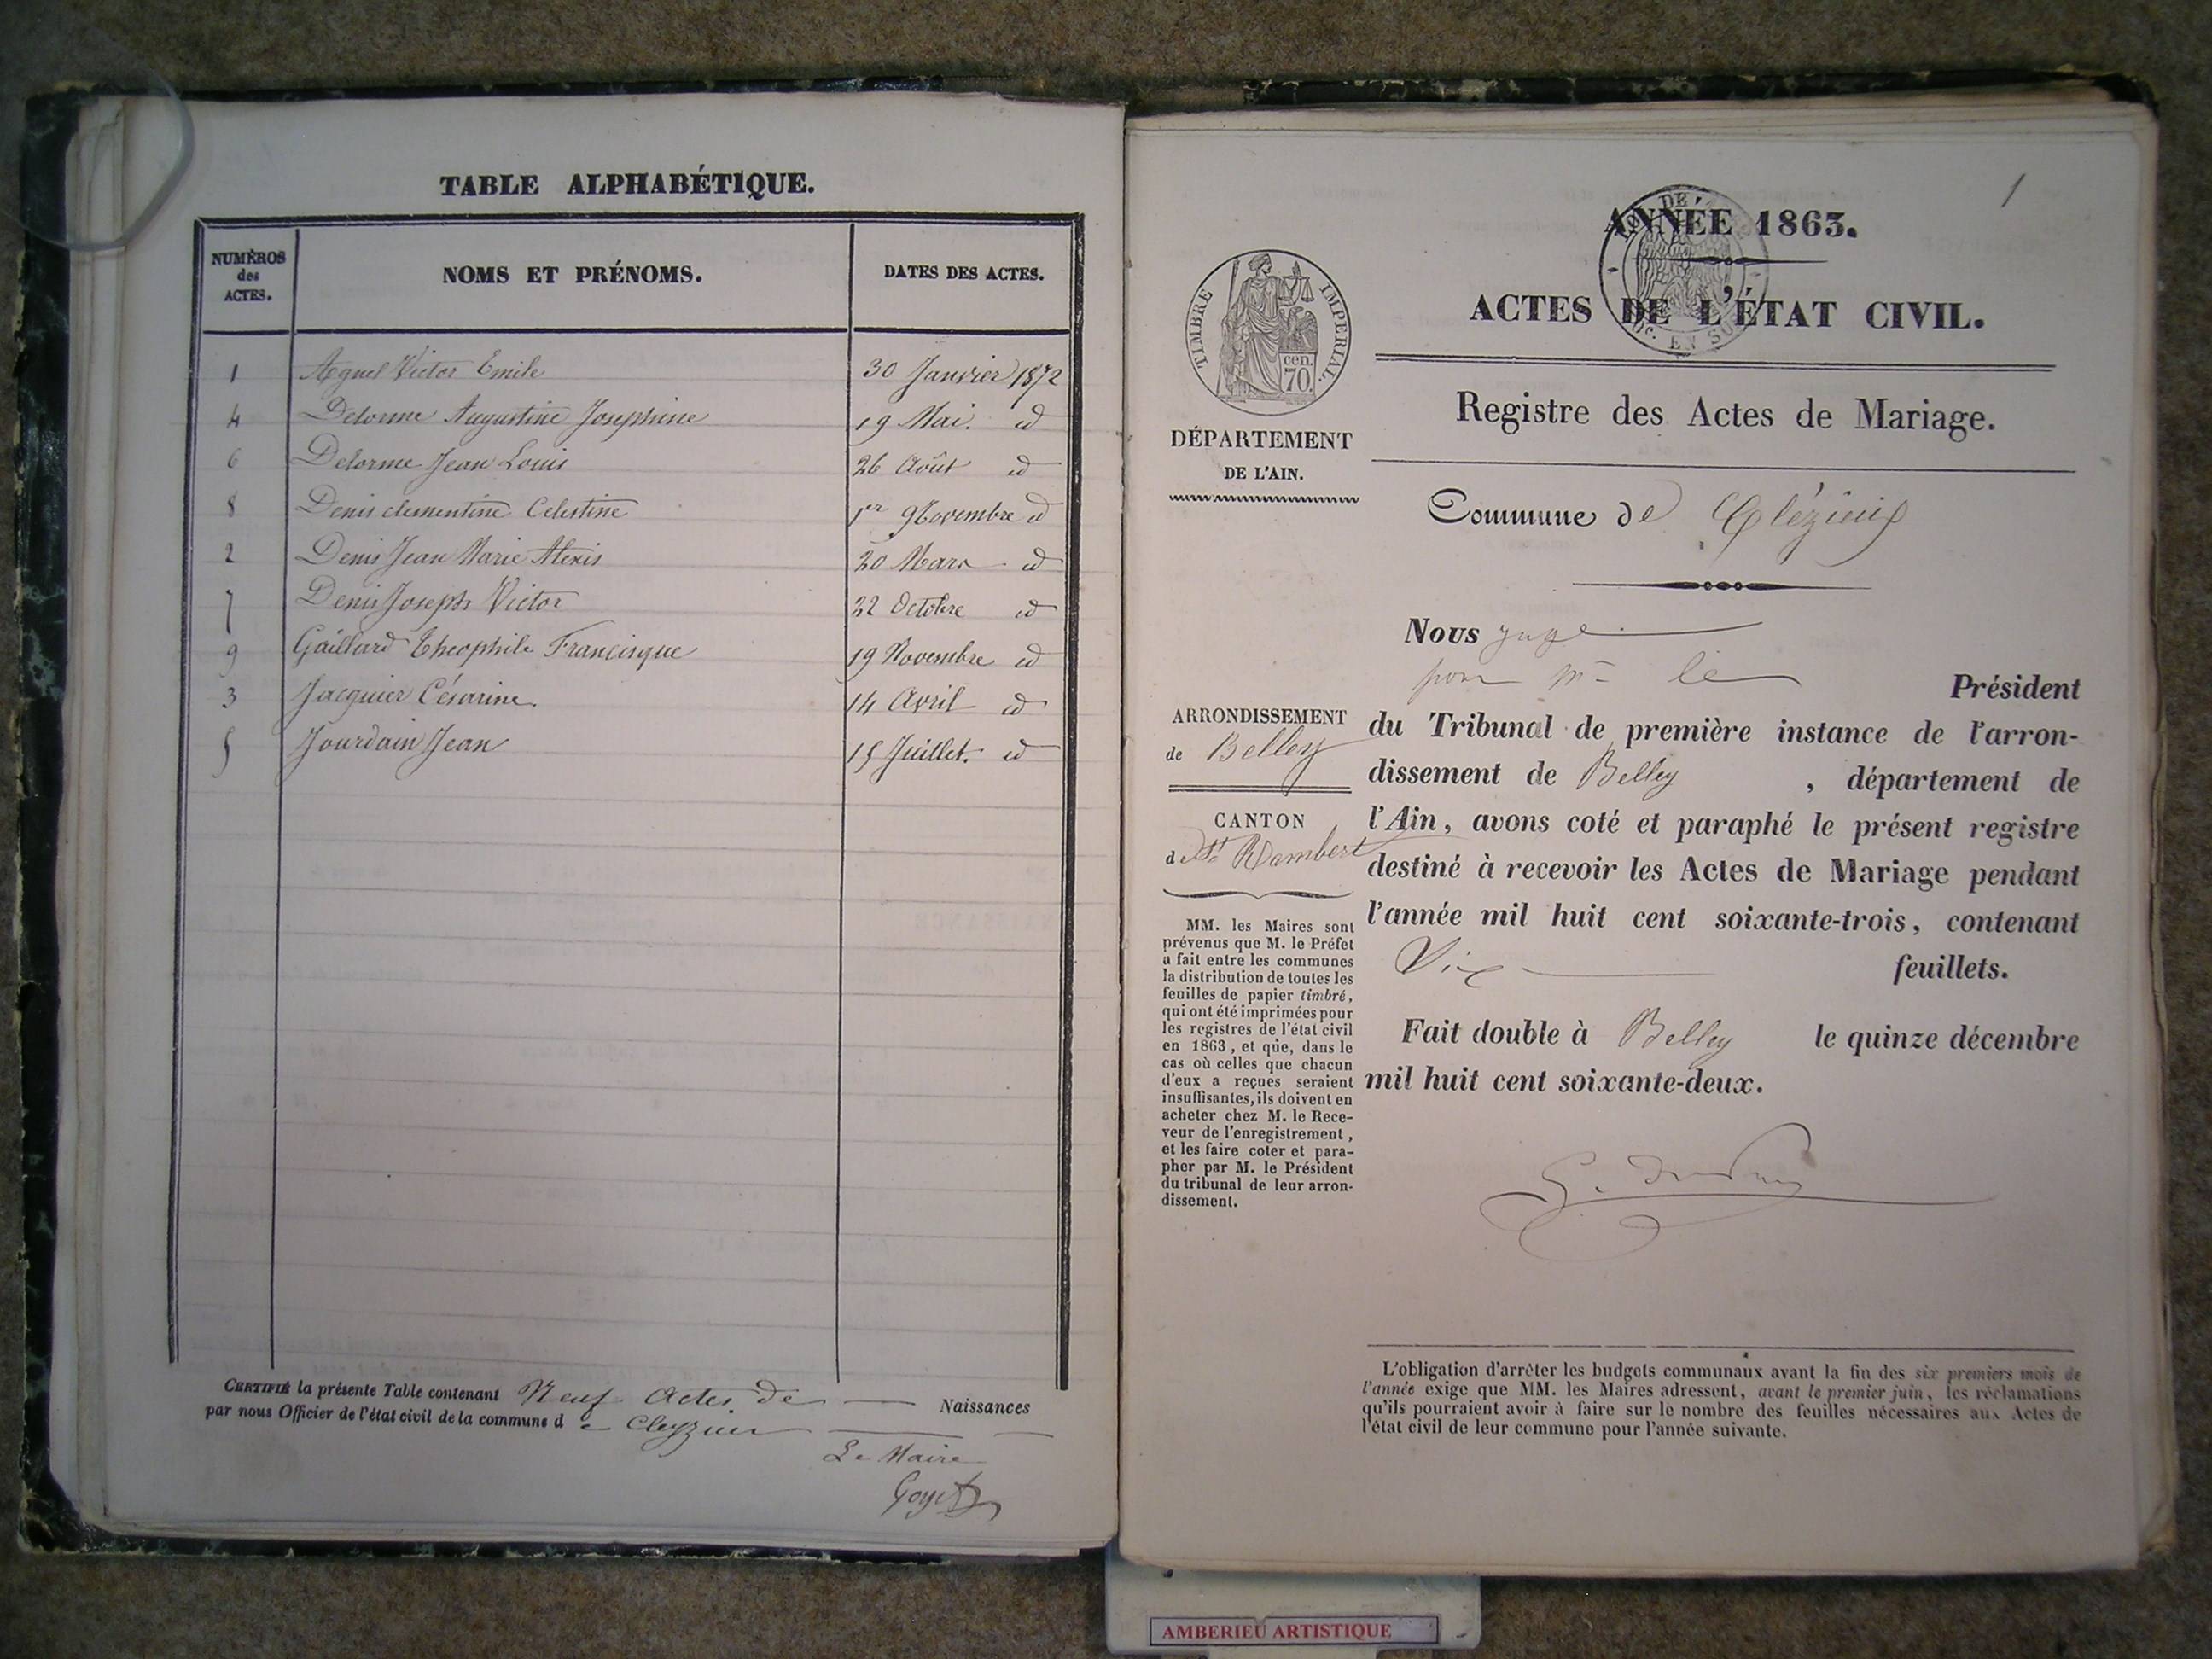 TABLE ALPHABÉTIQUE.
NUMÉROS des ACTES.
NOMS ET PRÉNOMS.
DATES DES ACTES.
1 Agnel Victor Emile 30 Janvier 1872
4 Delorme Augustine Josephine 19 Mai. id
6 Delorme Jean Louis 26 Août id
8 Denis clementine Celestine 1er 9bovembre id
2 Denis Jean Marie Alexis 20 Mars id
7 Denis Joseph Victor 22 Octobre id
9 Gaillard Theophile Francisque 19 Novembre id
3 Jacquier Césarine. 14 Avril id
5 Jourdain Jean 15 Juillet. id
CERTIFIÉ la présente Table contenant Neuf Actes de Naissances
par nous Officier de l'état civil de la commune d e Cleyzieu
Le Maire
Goyet
1
ANNÉE 1863.
ACTES DE L'ÉTAT CIVIL.
TIMBRE IMPERIAL.
70 cen.
Registre des Actes de Mariage.
DÉPARTEMENT
DE L'AIN.
Commune de Clézieux
Nous juge
pour Mr le Président
ARRONDISSEMENT
de Belley
du Tribunal de première instance de l'arron-
dissement de Belley, département de
CANTON
de St Rambert
l'Ain, avons coté et paraphé le présent registre
destiné à recevoir les Actes de Mariage pendant
l'année mil huit cent soixante-trois, contenant
feuillets.
MM. les Maires sont
prévenus que M. le Préfet
a fait entre les communes
la distribution de toutes les
feuilles de papier timbré,
qui ont été imprimées pour
les registres de l'état civil
en 1863, et que, dans le
cas où celles que chacun
d'eux a reçues seraient
insuffisantes, ils doivent en
acheter chez M. le Rece-
veur de l'enregistrement,
et les faire coter et para-
pher par M. le Président
du tribunal de leur arron-
dissement.
Fait double à Belley le quinze décembre
mil huit cent soixante-deux.
L'obligation d'arrêter les budgets communaux avant la fin des six premiers mois de
l'année exige que MM. les Maires adressent, avant le premier juin, les réclamations
qu'ils pourraient avoir à faire sur le nombre des feuilles nécessaires aux Actes de
l'état civil de leur commune pour l'année suivante.
AMBERIEU ARTISTIQUE